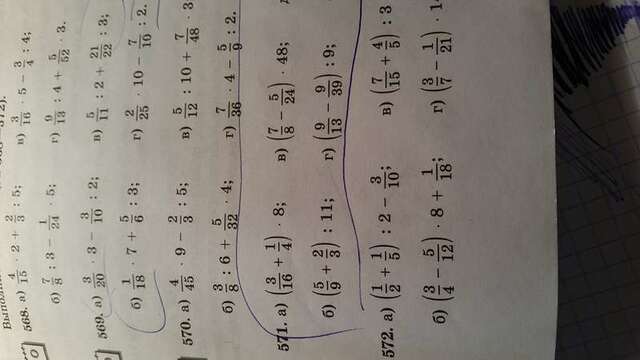 Выполни
568. а) 4/15 · 2 + 2/3 : 5; в) 3/16 · 5 − 3/4 : 4;
б) 7/8 : 3 − 1/24 · 5; г) 9/13 : 4 + 5/52 · 3.
569. а) 3/20 · 3 − 3/10 : 2; в) 5/11 : 2 + 21/22 : 3;
б) 1/18 · 7 + 5/6 : 3; г) 2/25 · 10 − 7/10 : 2.
570. а) 4/45 · 9 − 2/3 : 5; в) 5/12 : 10 + 7/48 · 3
б) 3/8 : 6 + 5/32 · 4; г) 7/36 · 4 − 5/9 : 2.
571. а) (3/16 + 1/4) · 8; в) (7/8 − 5/24) · 48;
б) (5/9 + 2/3) : 11; г) (9/13 − 9/39) : 9;
572. а) (1/2 + 1/5) : 2 − 3/10; в) (7/15 + 4/5) : 3
б) (3/4 − 5/12) · 8 + 1/18; г) (3/7 − 1/21) · 1